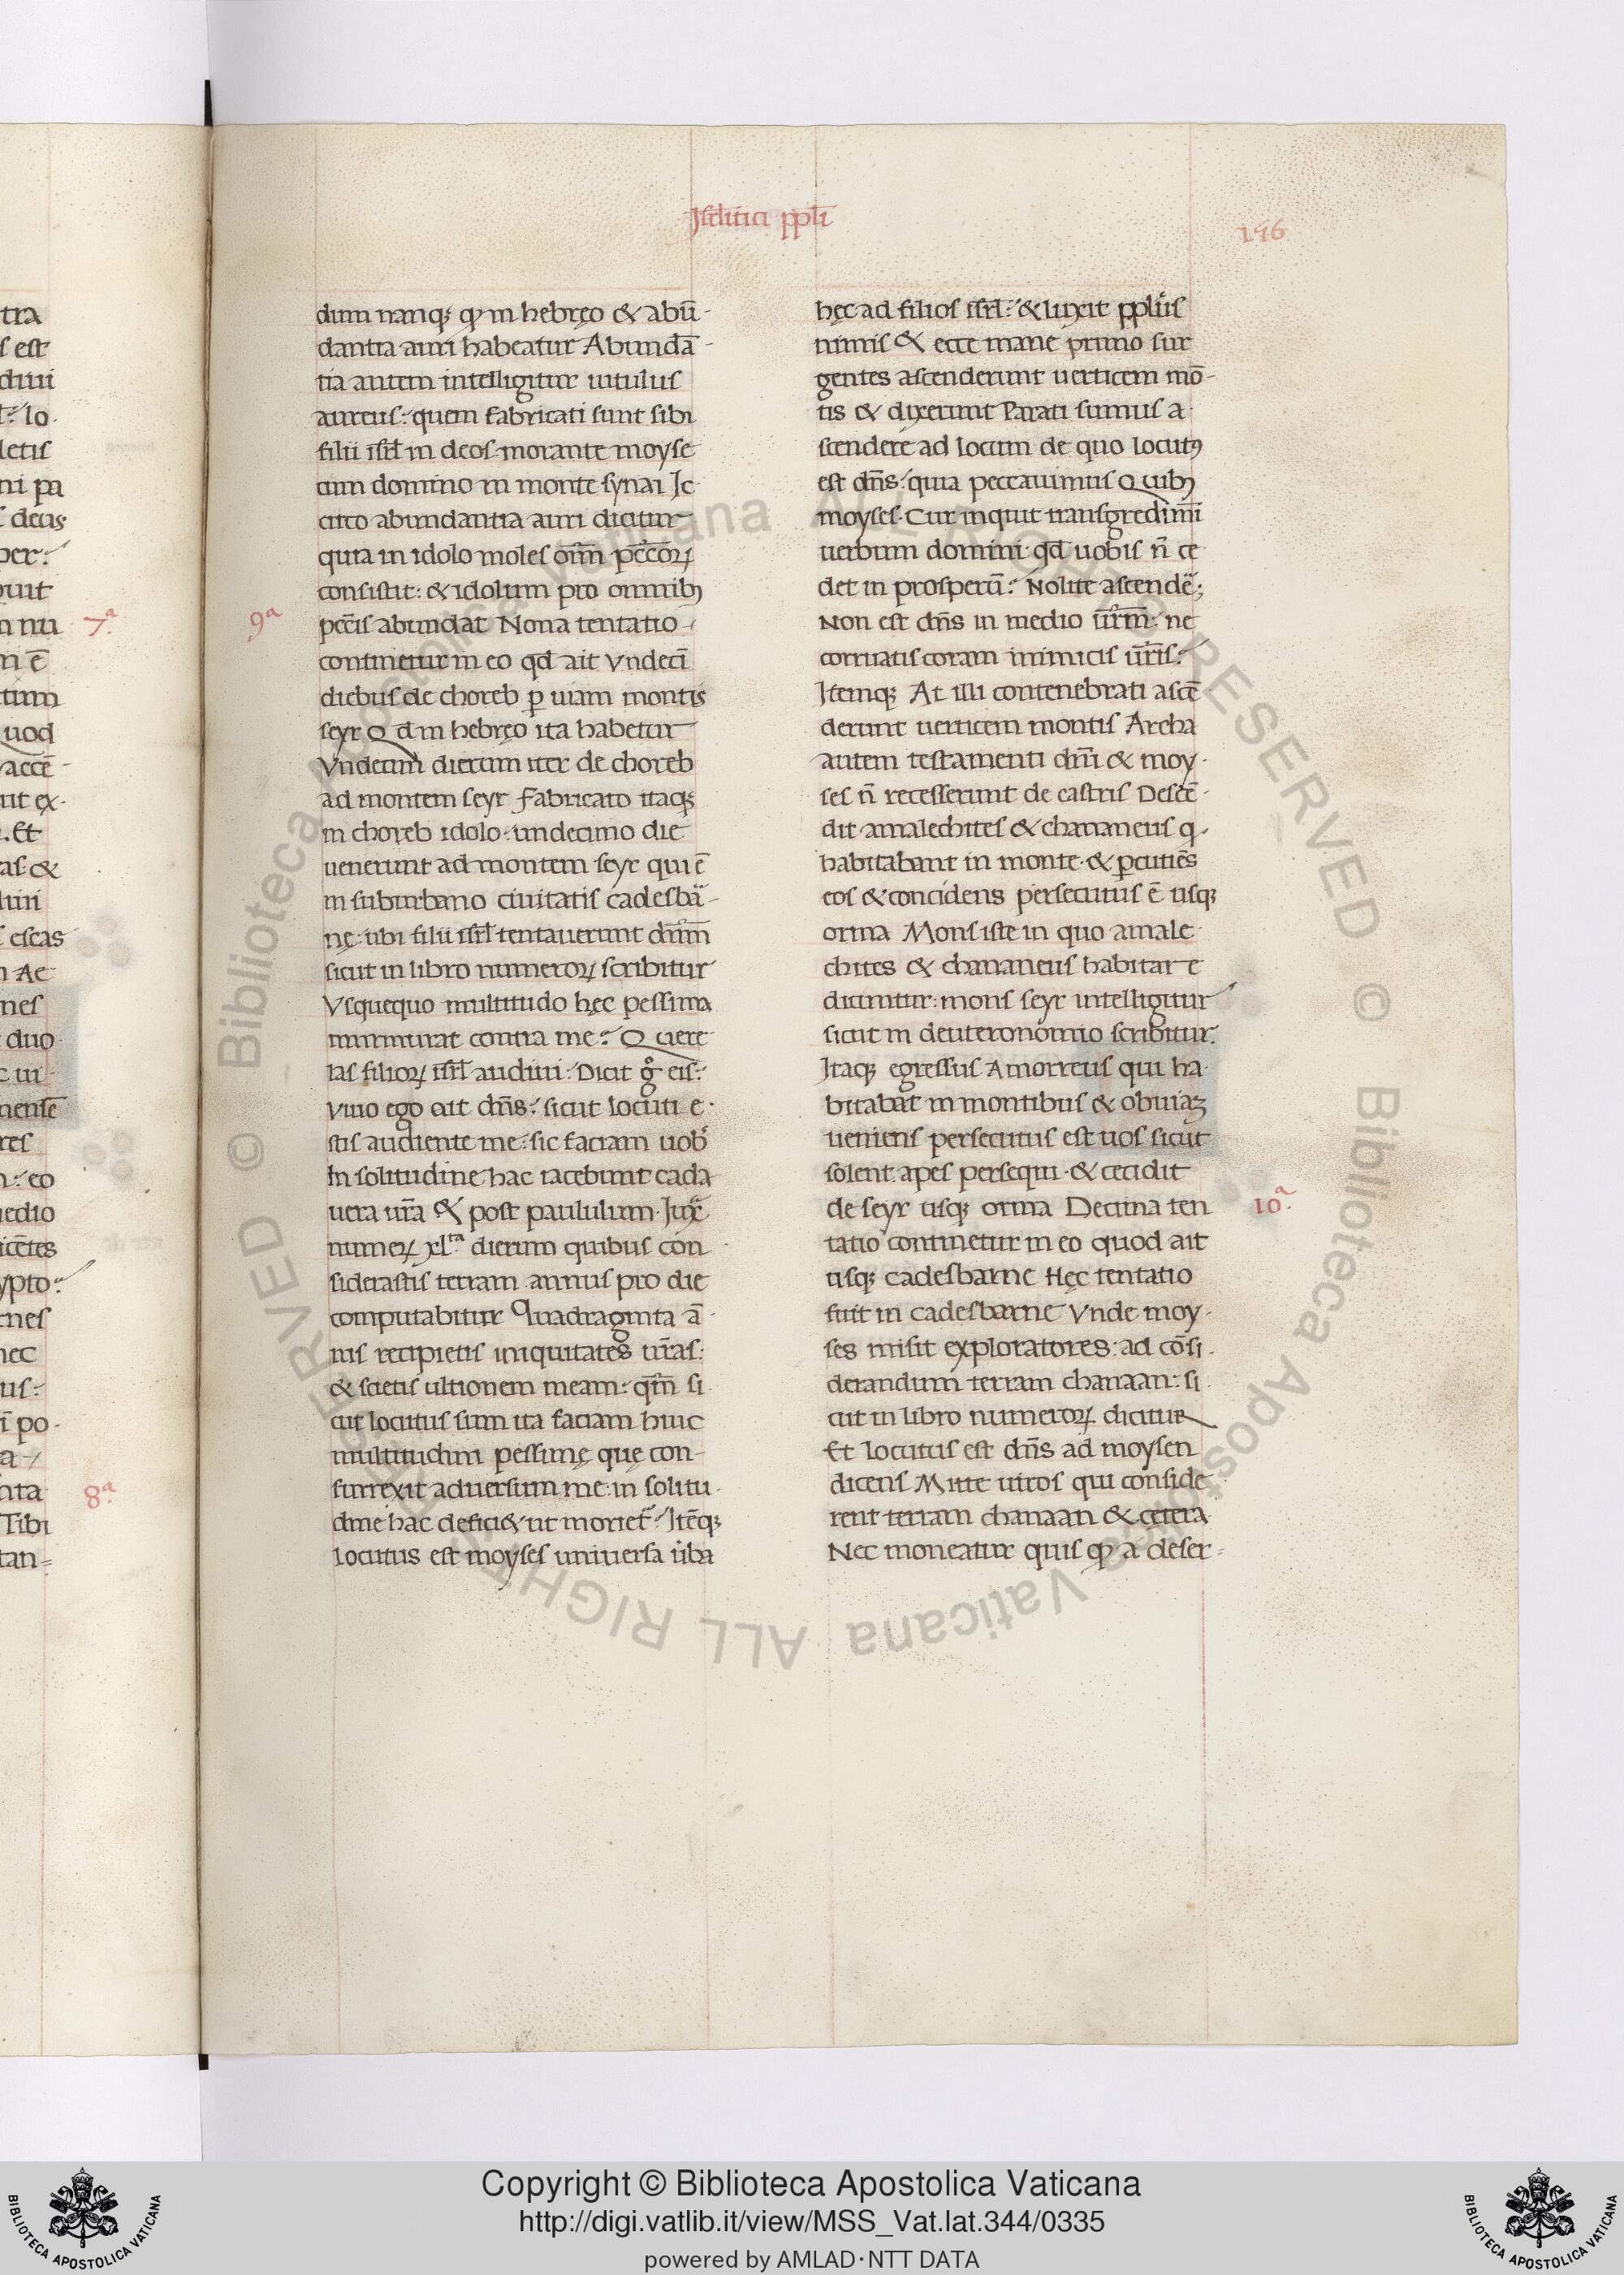 Isrl̄itici pp̄li
156
dum nanqꝫ qm̄ in hebręo & abū-
dantia auri habeatur Abundā-
tia autem intelligitur uitulus
aureus: quem fabricati sunt sibi
filii isrl̄ in deos morante moyse
cum domino in monte synai Ic
circo abundantia auri dicitur
quia in idolo moles om̄m pēccōꝝ
consistit: & idolum pro omnibꝰ
pecc̄is abundat Nona tentatio
continetur in eo qd̄ ait Vndecī
diebus de choreb ꝑ uiam montis
seyr Qd̄ in hebręo ita habetur
Vndecim dierum iter de choreb
ad montem seyr Fabricato itaqꝫ
in choreb idolo: undecimo die
uenerunt ad montem seyr qui ē
in suburbano ciuitatis cadesba-
nę: ubi filii isrl̄ tentauerunt dn̄m
sicut in libro numeroꝝ scribitur
Vsquequo multitudo hęc pessima
murmurat contra me? Quere
las filioꝝ isrl̄ audiui: Dicit g̊ eis:
Viuo ego ait dn̄s: sicut locuti e-
stis audiente me: sic faciam uob̄
In solitudine hac iacebunt cada
uera ur̄a & post paululum Iuxͣ
numeꝝ xl.ta dierum quibus con
siderastis terram annus pro die
computabitur Quadraginta ā-
nis recipietis iniquitates ur̄as:
& scietis ultionem meam: qm̄ si
cut locutus sum ita faciam huic
multitudini pessimę quę con-
surrexit aduersum me: in solitu
dine hac defici& ut moriet̄ Itēqꝫ
Locutus est moyses uniuersa ūba
9ª
hęc ad filios isrl̄: & luxit pp̄lus
nimis & ecce mane primo sur
gentes ascenderunt uerticem mō-
tis & dixerunt Parati sumus a
scendere ad locum de quo locutꝰ
est dn̄s: quia peccauimus Quibꝰ
moyses Cur inquit transgredimī
uerbum domini qd̄ uobis n̄ ce
det in prosperū? Nolite ascendē;
Non est dn̄s in medio ur̄m: ne
corruatis coram inimicis ur̄is:
Itemqꝫ At illi contenebrati ascē-
derunt uerticem montis Archa
autem testamenti dn̄i & moy-
ses n̄ recesserunt de castris Descē-
dit amalechites & chananeus q̇
habitabant in monte & ꝑcutiēs
eos & concidens persecutus ē usqꝫ
orma Mons iste in quo amale
chites & chananeus habitare
dicuntur: mons seyr intelligitur
sicut in deuteronomio scribitur:
Itaqꝫ egressus Amorreus qui ha
bitabat in montibus & obuiaꝫ
ueniens persecutus est uos sicut
solent apes persequi & cecidit
de seyr usqꝫ orma Decima ten
tatio continetur in eo quod ait
usqꝫ cadesbarne Hęc tentatio
fuit in cadesbarne Vnde moy-
ses misit exploratores: ad cōsi-
derandum terram chanaan: si
cut in libro numeroꝝ dicitur
Et locutus est dn̄s ad moysen
dicens Mitte uiros qui conside
rent terram chanaan & cetera
Nec moneatur quis qꝫ a deser-
10ª
tra
est
7ª
uod
Et
& 
escas
Ae
nes
duo
edio
8ª
Tibi
tan=
© Biblioteca Apostolica Vaticana ALL RIGHTS RESERVED
© Biblioteca Apostolica Vaticana ALL RIGHTS RESERVED
BIBLIOTECA APOSTOLICA VATICANA
Copyright © Biblioteca Apostolica Vaticana
http://digi.vatlib.it/view/MSS_Vat.lat.344/0335
powered by AMLAD·NTT DATA
BIBLIOTECA APOSTOLICA VATICANA